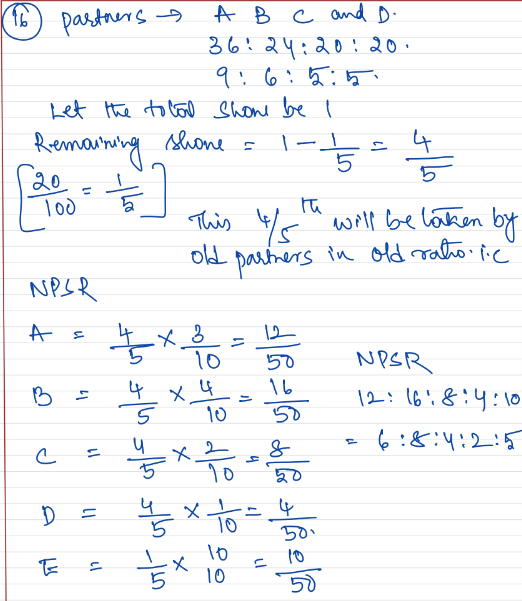 16 partners → A B C and D.
36 : 24 : 20 : 20 .
9 : 6 : 5 : 5 .
Let the total share be 1
Remaining share = 1 - 1/5 = 4/5
[20/100 = 1/5]
This 4/5 th will be taken by
old partners in old ratio. i.e
NPSR
A = 4/5 × 3/10 = 12/50
B = 4/5 × 4/10 = 16/50
C = 4/5 × 2/10 = 8/50
D = 4/5 × 1/10 = 4/50.
E = 1/5 × 10/10 = 10/50
NPSR
12 : 16 : 8 : 4 : 10
= 6 : 8 : 4 : 2 : 5